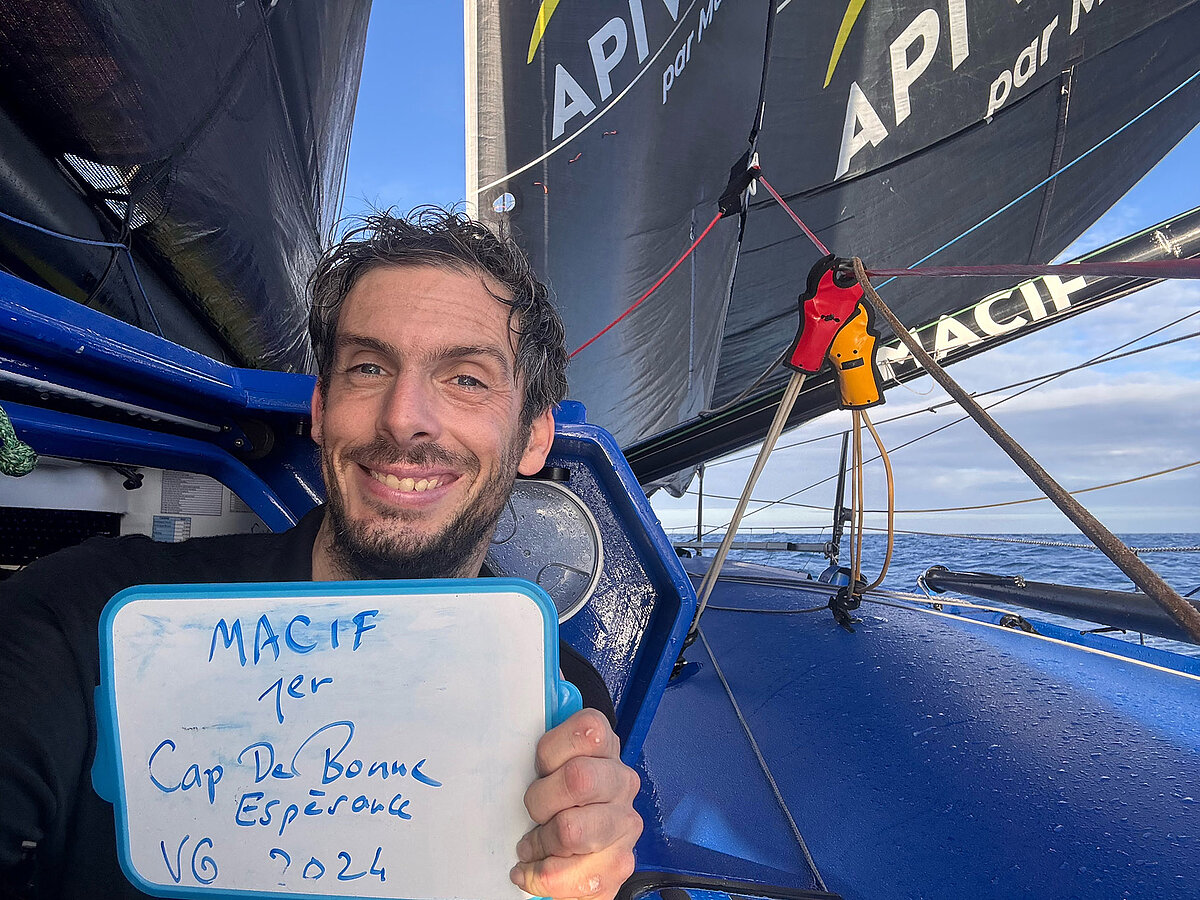 APIV
par Ma
APIV
par Ma
MACIF
MACIF
1er
Cap De Bonne
Espérance
VG 2024